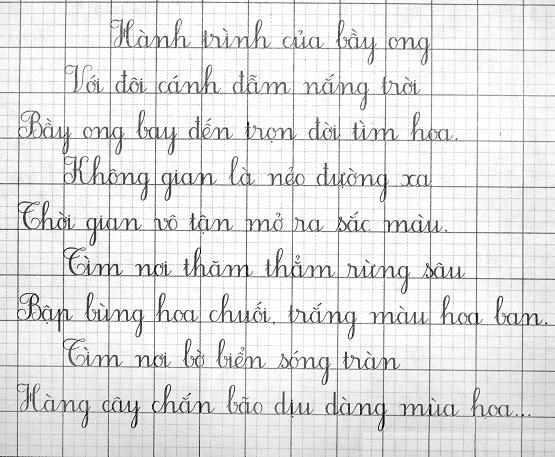 Hành trình của bầy ong
Với đôi cánh đẫm nắng trời
Bầy ong bay đến trọn đời tìm hoa.
Không gian là nẻo đường xa
Thời gian vô tận mở ra sắc màu.
Tìm nơi thăm thẳm rừng sâu
Bập bùng hoa chuối, trắng màu hoa ban.
Tìm nơi bờ biển sóng tràn
Hàng cây chắn bão dịu dàng mùa hoa...